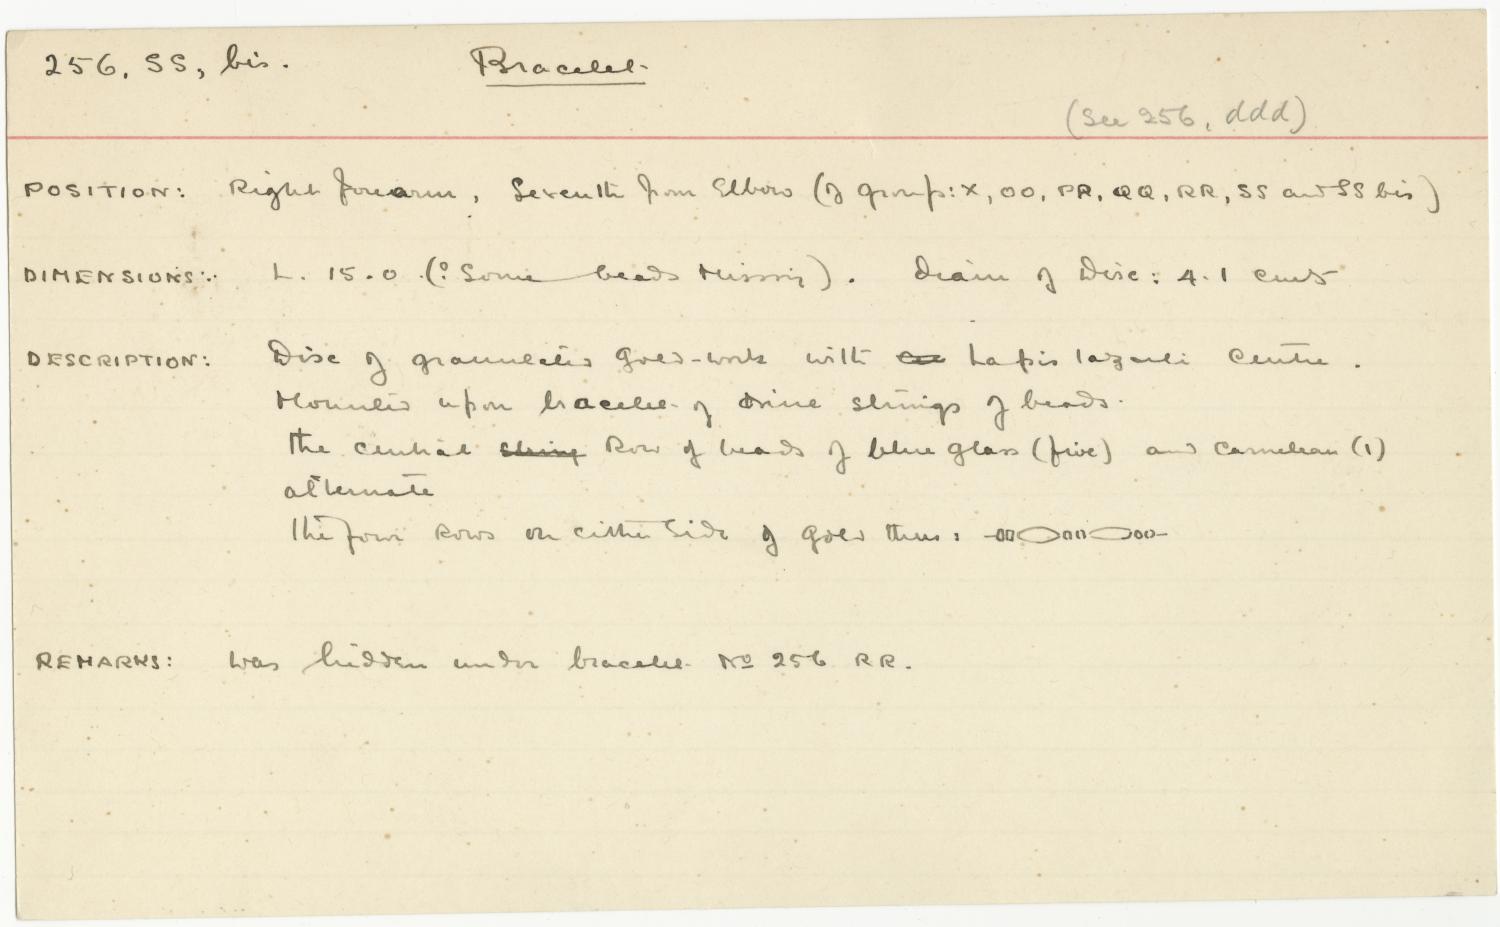 256, SS, bis.
Bracelet
(See 256, ddd)
POSITION: Right forearm, Seventh from Elbow (of group: X, OO, PP, QQ, RR, SS and SS bis)
DIMENSIONS: L. 15.0 (? Some beads Missing). Diam of Disc: 4.1 cms
DESCRIPTION: Disc of granulated gold-work with Lapis lazuli Centre.
Mounted upon bracelet of nine strings of beads.
The central string Row of beads of blue glass (five) and Carnelian (1)
alternate
The four Rows on either Side of gold thus:
REMARKS: Was hidden under bracelet No 256 RR.